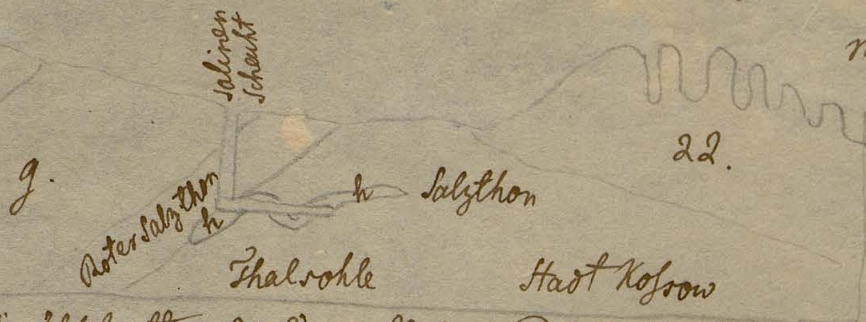 Salinen
Schacht
g.
22.
Roter Salzthon
h
h
Salzthon
Thalsohle
Stadt Kossow